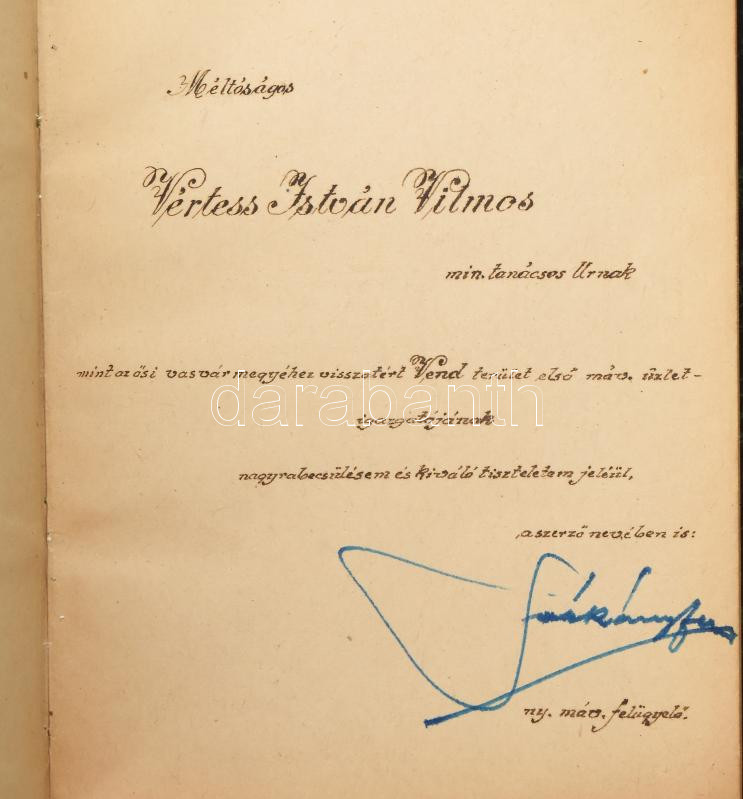 Méltóságos
Vértess István Vilmos
min. tanácsos Urnak
mint az ősi vasvármegyéhez visszatért Vend terület első máv. üzlet-
darabanth
igazgatójának
nagyrabecsülésem és kiváló tiszteletem jeléül,
a szerző nevében is:
ny. máv. felügyelő.